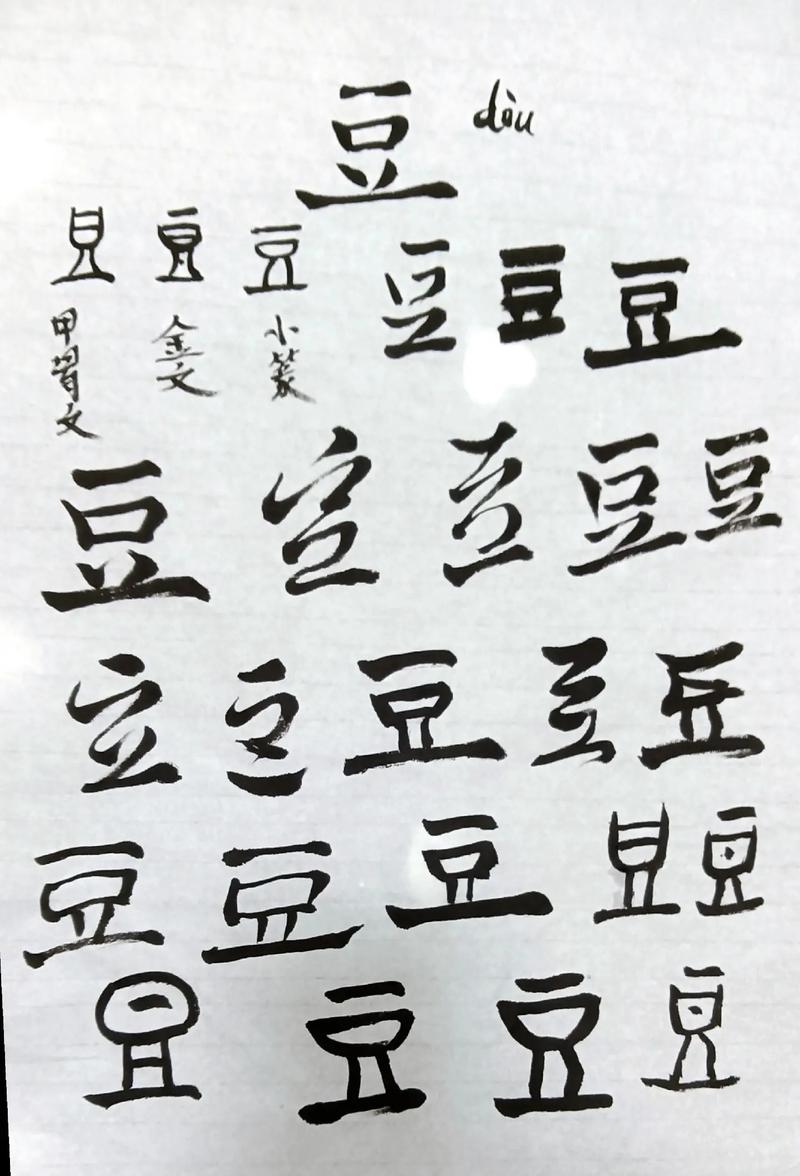 豆 dòu
豆 豆 豆 豆 豆 豆
甲骨文 金文 小篆
豆 豆 豆 豆 豆
豆 豆 豆 豆 豆
豆 豆 豆 豆 豆
豆 豆 豆 豆